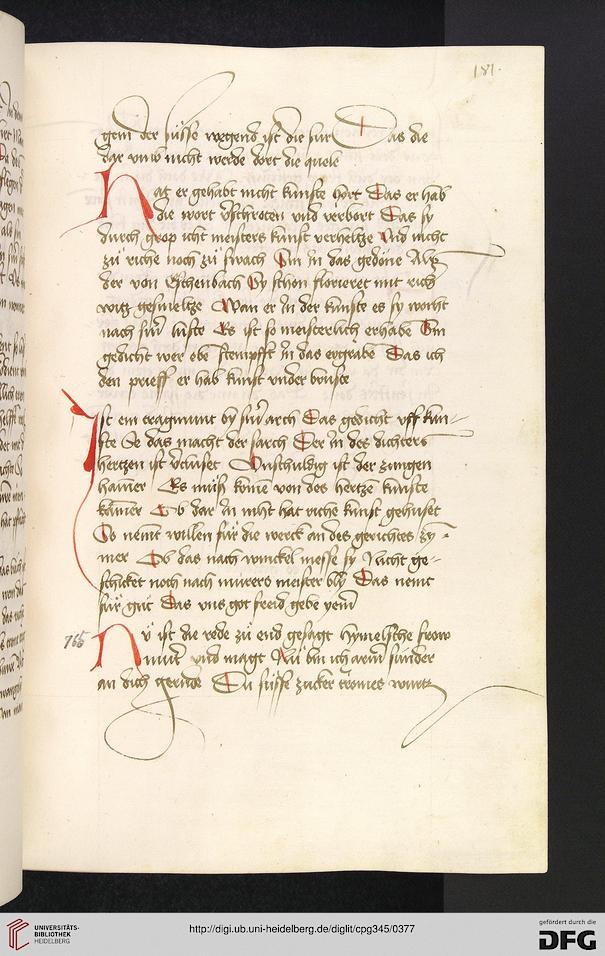 181.
gein der süsse wegend ist die sur Das die
dar vmb nicht werde dort die quele
Hat er gehabt nicht kunste hort Das er hab
die wort v̈schroten vnd verbort Das sy
durch grop icht meisters kunst verheltze Vnd nicht
zů riche noch zů swach Jm in das gedöne Als
der von Eschenbach By schon florieret mit rich
witz gesmeltze Wan er in der kunste es sy worht
nach sin luste Es ist so meisterlich erhabē Sin
gedicht wer ebē stempfft in das ergrabē Das ich
den prieff er hab kunst vnder bruste
Jst ein by sin arch Das gedicht vff kun-
ste Se das macht der sarch Der in des dichters
hertzen ist v̈cluset Vnschuldig ist der zungen
hamer Es můsz komē von des hertzē kunste
kamer Ob dar in niht hat riche kunst gehuset
So nemt willen für die werck an des gerichtes zy-
mer Ob das nach winckel messe sy Nicht ge-
schicket noch nach murers meister bly Das nemt
für gůt Das vns got freid gebe ÿemer
765
Nů ist die rede zů end gesagt Hymelsche frow
můter vnd magt Nů bin ich armer sunder
an dich gernde Du süsse zucker wurtz
UNIVERSITÄTS-
BIBLIOTHEK
HEIDELBERG
http://digi.ub.uni-heidelberg.de/diglit/cpg345/0377
gefördert durch die
DFG